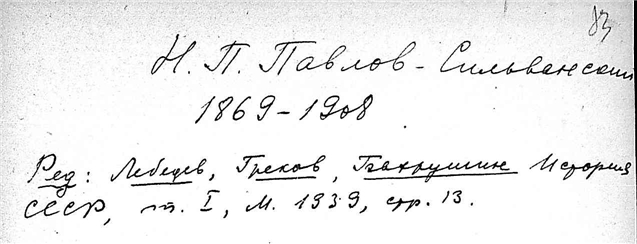 83
Н. П. Павлов-Сильванский
1869-1908
Ред: Лебедев, Греков, Бахрушин История
СССР, т. I, М. 1939, стр. 13.